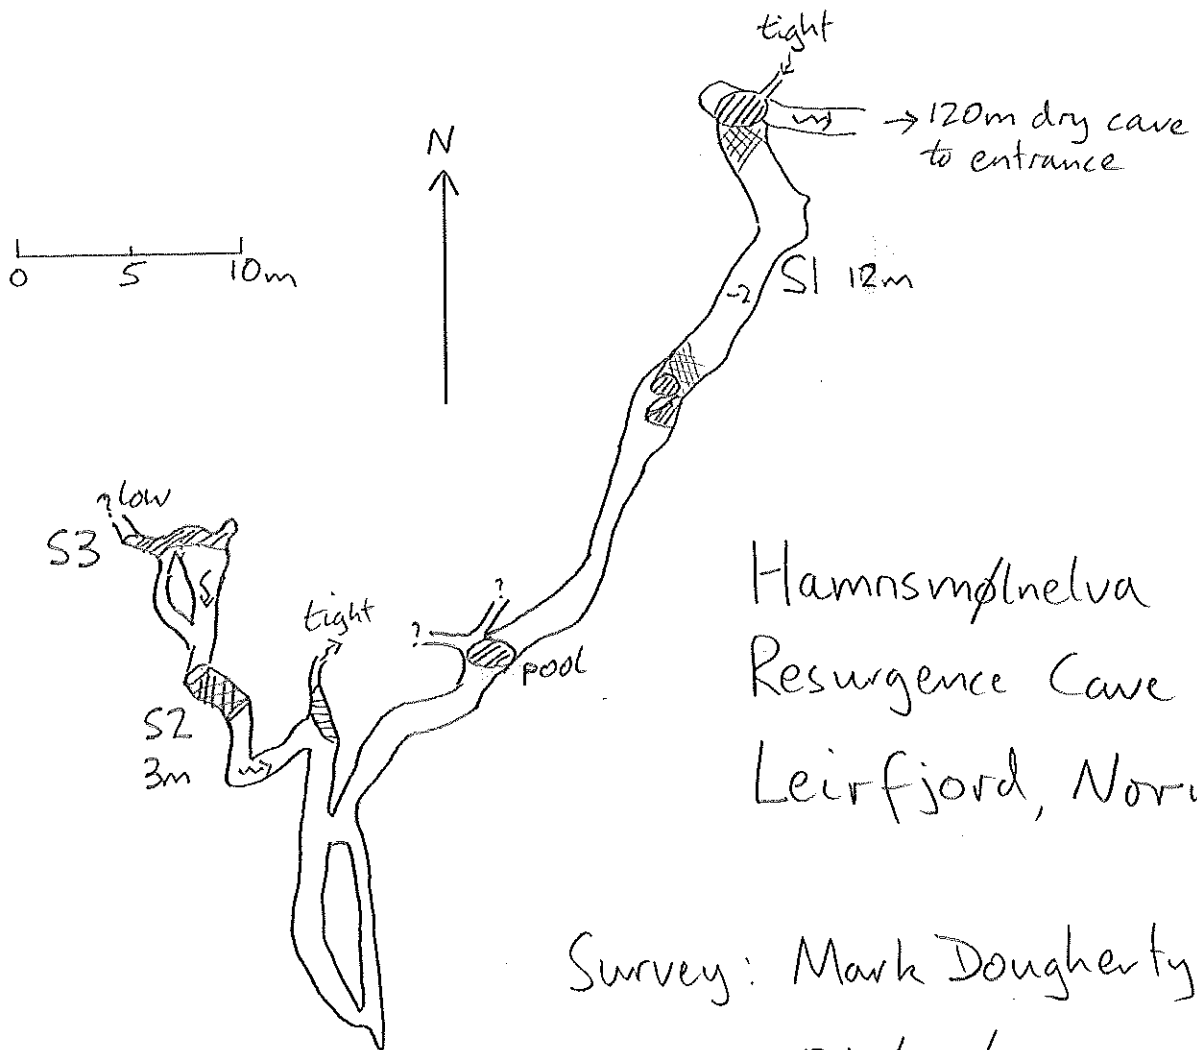 tight
→ 120m dry cave
to entrance
N
0 5 10m
S1 12m
-2
? low
S3
tight
?
?
pool
S2
3m
Hamnsmølnelva
Resurgence Cave
Leirfjord,
Survey: Mark Dougherty